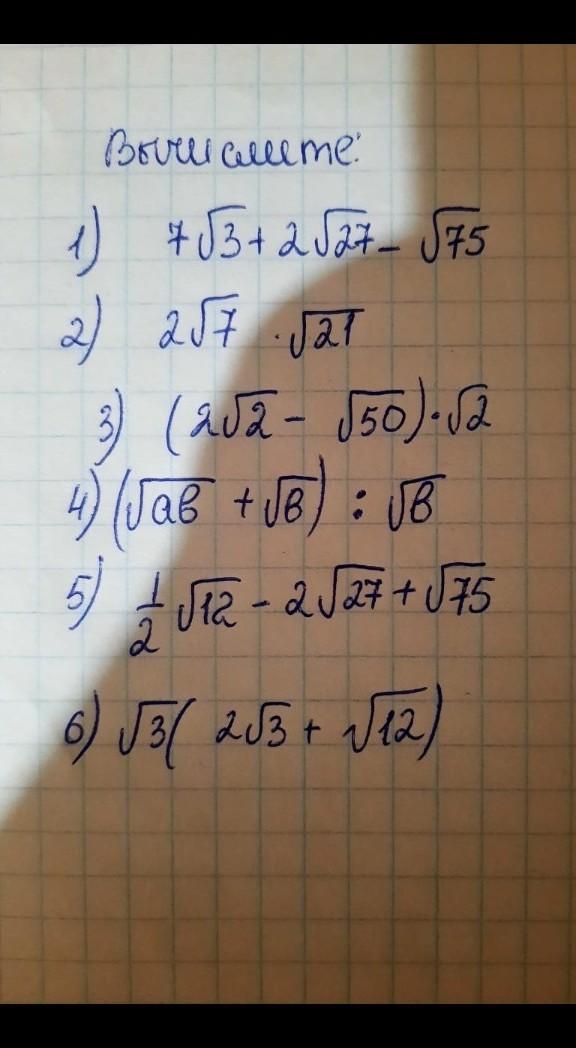 Вычислите:
1) 7√3 + 2√27 - √75
2) 2√7 · √21
3) (2√2 - √50) · √2
4) (√ав + √в) : √в
5) 1/2 √12 - 2√27 + √75
6) √3( 2√3 + √12)